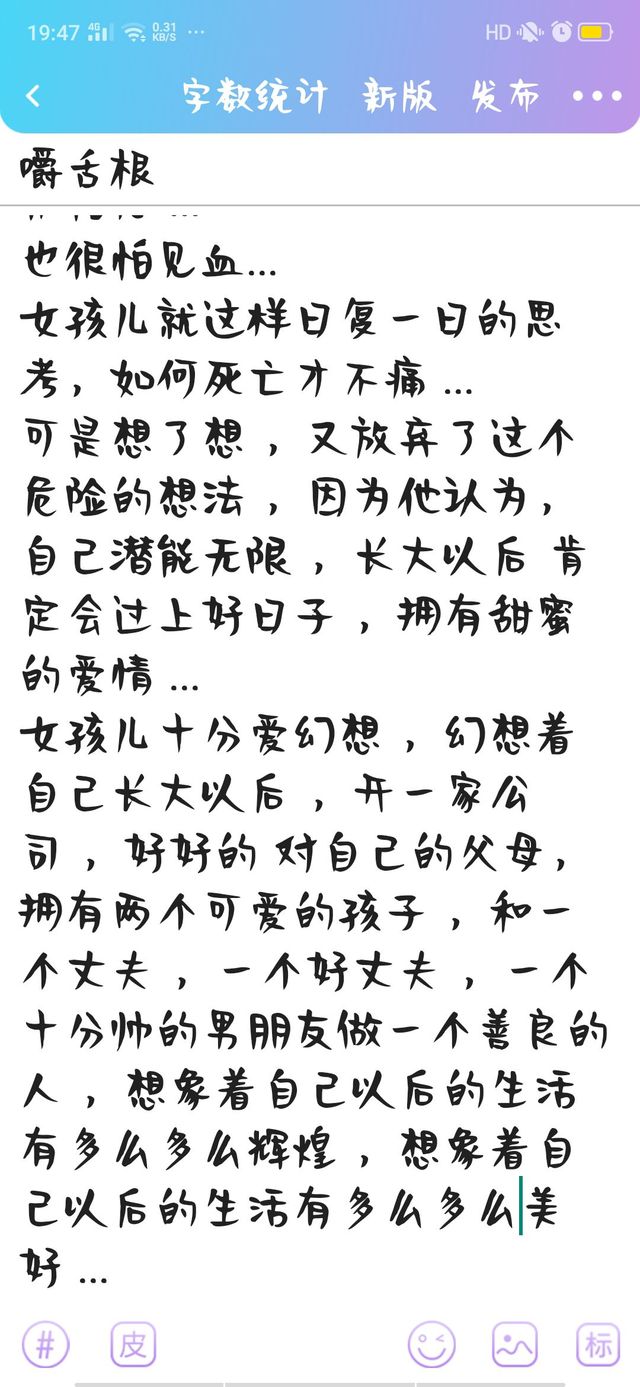 19:47 4G 0.31 KB/S ... HD
字数统计 新版 发布
嚼舌根
也很怕见血...
女孩儿就这样日复一日的思
考，如何死亡才不痛...
可是想了想，又放弃了这个
危险的想法，因为他认为，
自己潜能无限，长大以后 肯
定会过上好日子，拥有甜蜜
的爱情...
女孩儿十分爱幻想，幻想着
自己长大以后，开一家公
司，好好的 对自己的父母，
拥有两个可爱的孩子，和一
个丈夫，一个好丈夫，一个
十分帅的男朋友做一个善良的
人，想象着自己以后的生活
有多么多么辉煌，想象着自
己以后的生活有多么多么美
好...
# 皮 标